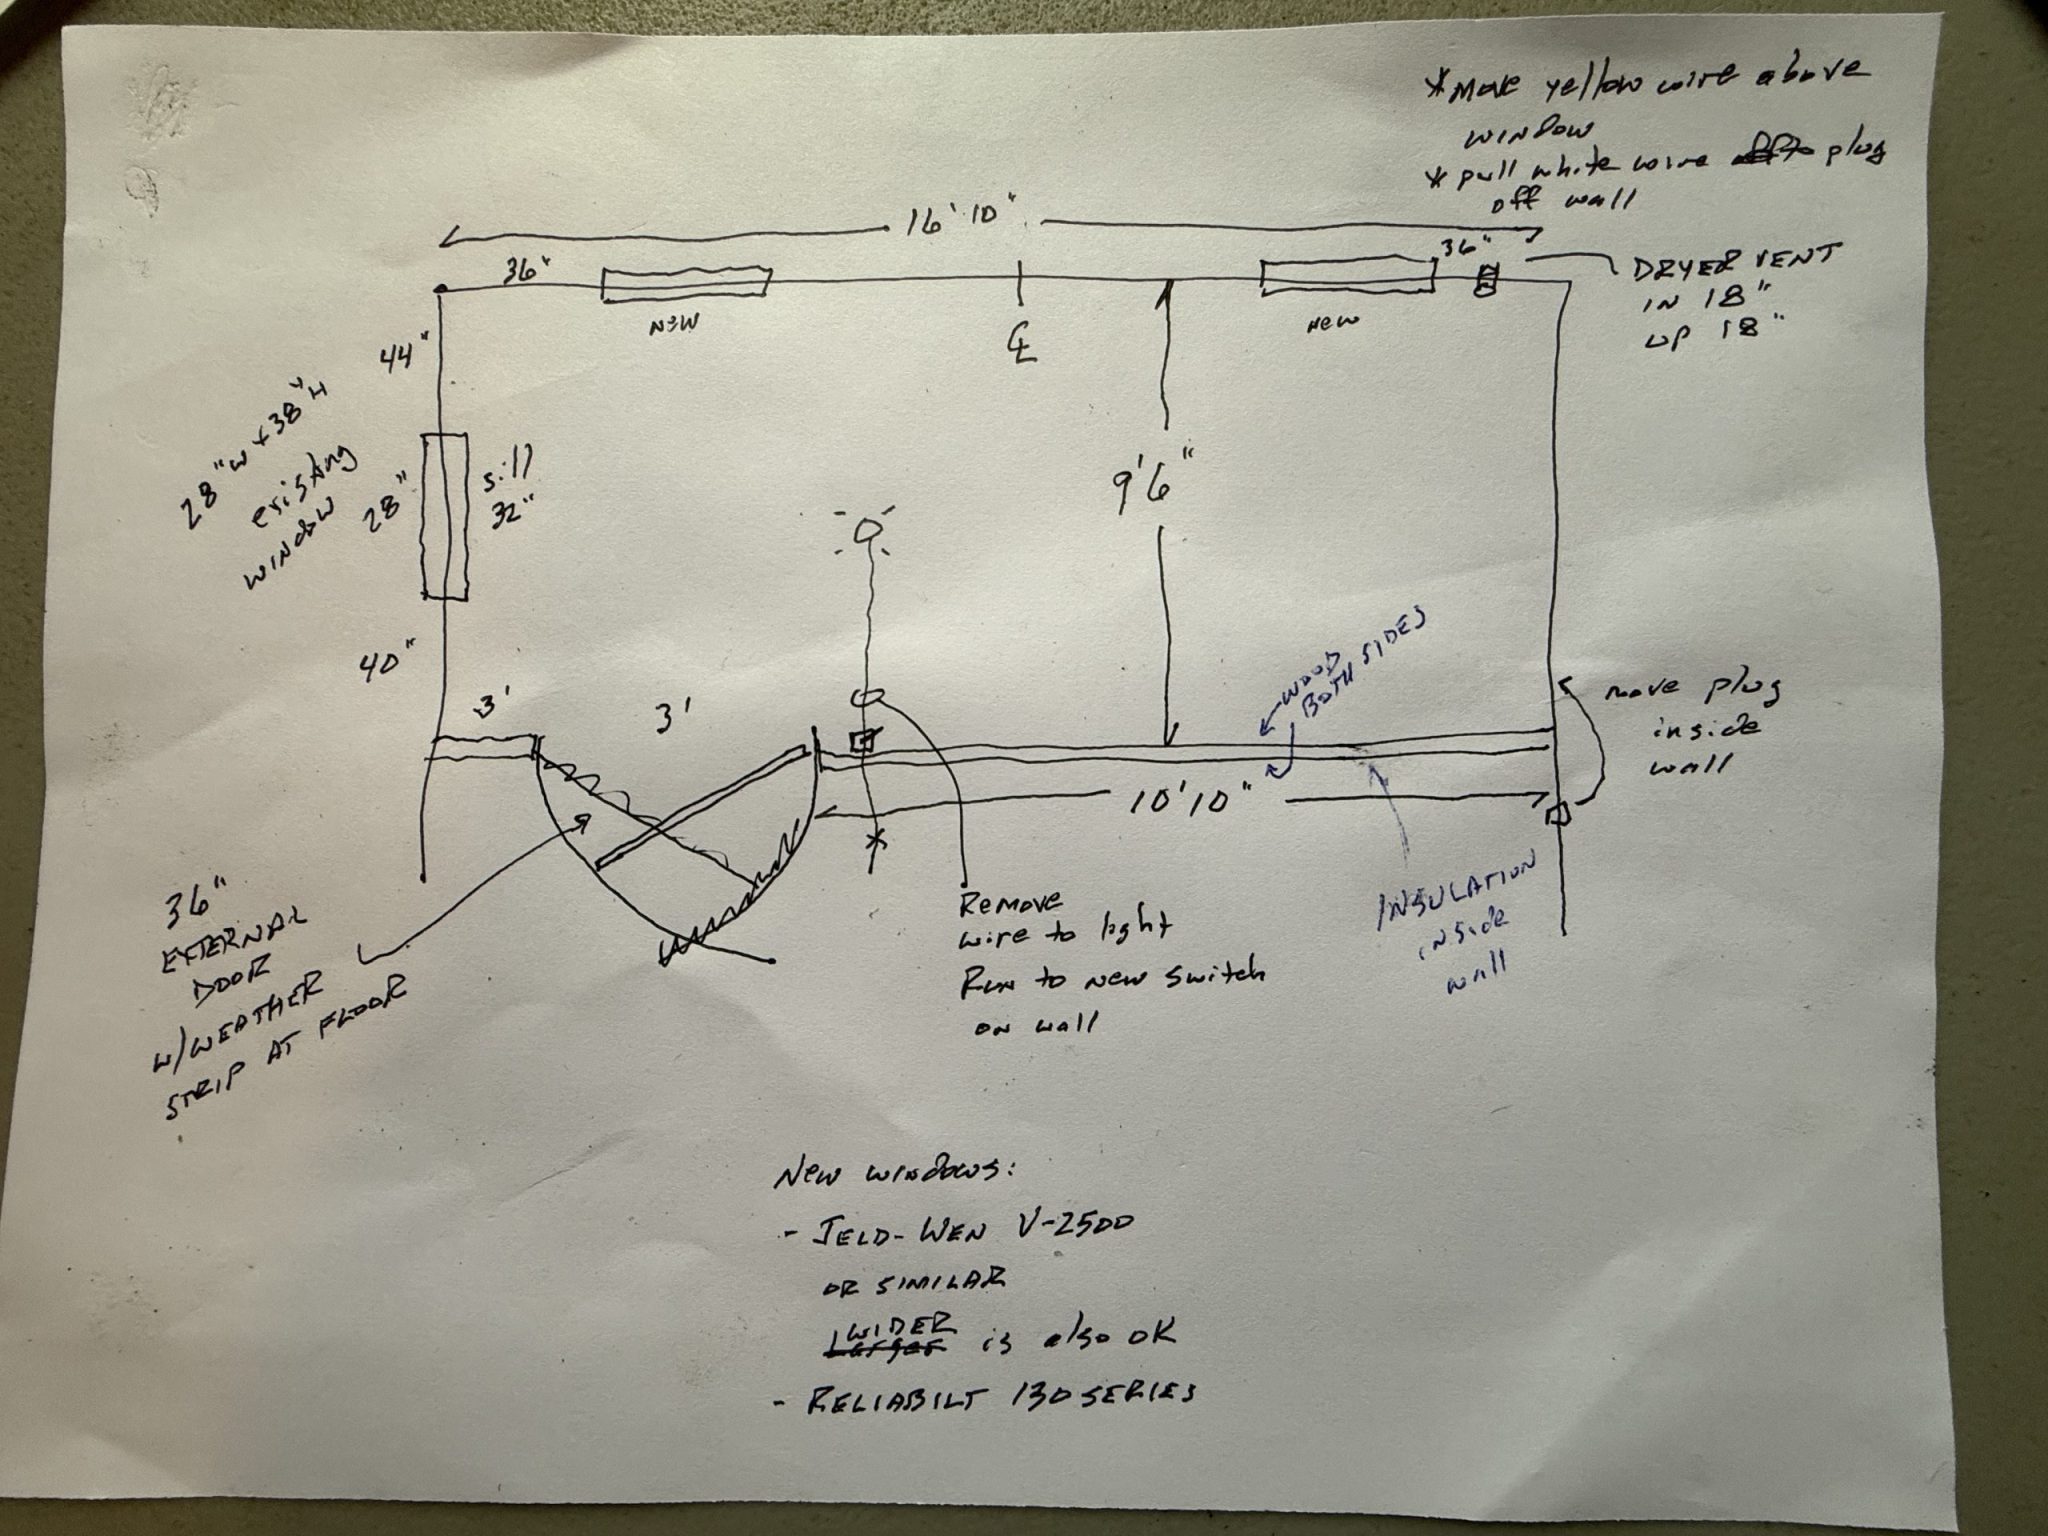 * Move yellow wire above
window
* pull white wire plug
off wall
16' 10"
36"
36"
DRYER VENT
IN 18"
UP 18"
New
New
℄
44"
28"W x 38"H
existing
window
28"
sill
32"
9'6"
40"
3'
3'
WOOD
BOTH SIDES
move plug
inside
wall
10'10"
*
36"
EXTERNAL
DOOR
W/WEATHER
STRIP AT FLOOR
Remove
wire to light
Run to new switch
on wall
INSULATION
inside
wall
New windows:
- JELD-WEN V-2500
OR SIMILAR
WIDER
Larger is also OK
- RELIABILT 130 SERIES